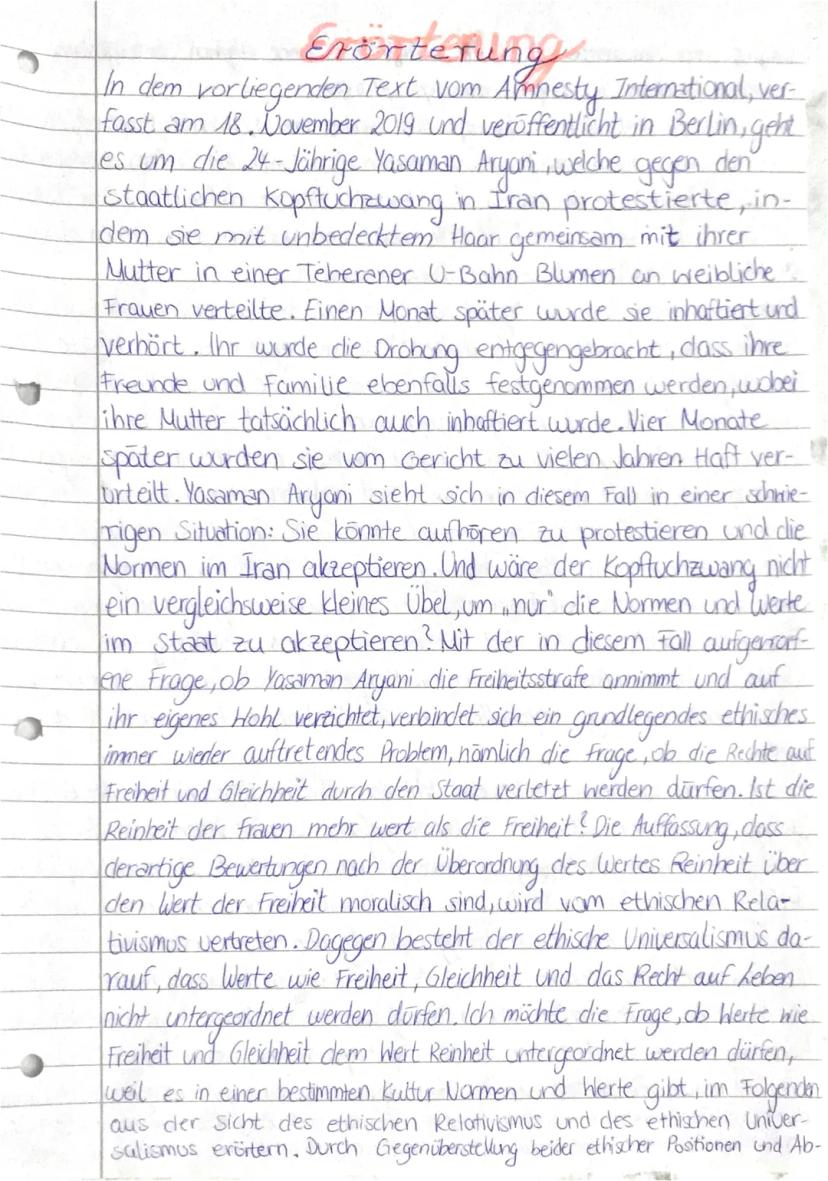 Erörterung
In dem vorliegenden Text vom Amnesty International, ver-
fasst am 18. November 2019 und veröffentlicht in Berlin, geht
es um die 24-Jährige Yasaman Aryani, welche gegen den
staatlichen Kopftuchzwang in Iran protestierte, in-
dem sie mit unbedecktem Haar gemeinsam mit ihrer
Mutter in einer Teherener U-Bahn Blumen an weibliche
Frauen verteilte. Einen Monat später wurde sie inhaftiert und
verhört. Ihr wurde die Drohung entgegengebracht, dass ihre
Freunde und Familie ebenfalls festgenommen werden, wobei
ihre Mutter tatsächlich auch inhaftiert wurde. Vier Monate
später wurden sie vom Gericht zu vielen Jahren Haft ver-
urteilt. Yasaman Aryani sieht sich in diesem Fall in einer schwie-
rigen Situation: Sie könnte aufhören zu protestieren und die
Normen im Iran akzeptieren. Und wäre der Kopftuchzwang nicht
ein vergleichsweise kleines Übel, um „nur" die Normen und Werte
im Staat zu akzeptieren? Mit der in diesem Fall aufgeworf-
ene Frage, ob Yasaman Aryani die Freiheitsstrafe annimmt und auf
ihr eigenes Wohl verzichtet, verbindet sich ein grundlegendes ethisches
immer wieder auftretendes Problem, nämlich die Frage, ob die Rechte auf
Freiheit und Gleichheit durch den Staat verletzt werden dürfen. Ist die
Reinheit der Frauen mehr wert als die Freiheit? Die Auffassung, dass
derartige Bewertungen nach der Überordnung des Wertes Reinheit über
den Wert der Freiheit moralisch sind, wird vom ethischen Rela-
tivismus vertreten. Dagegen besteht der ethische Universalismus da-
rauf, dass Werte wie Freiheit, Gleichheit und das Recht auf Leben
nicht untergeordnet werden dürfen. Ich möchte die Frage, ob Werte wie
Freiheit und Gleichheit dem Wert Reinheit untergeordnet werden dürfen,
weil es in einer bestimmten Kultur Normen und Werte gibt, im Folgenden
aus der Sicht des ethischen Relativismus und des ethischen Univer-
salismus erörtern. Durch Gegenüberstellung beider ethischer Positionen und Ab-